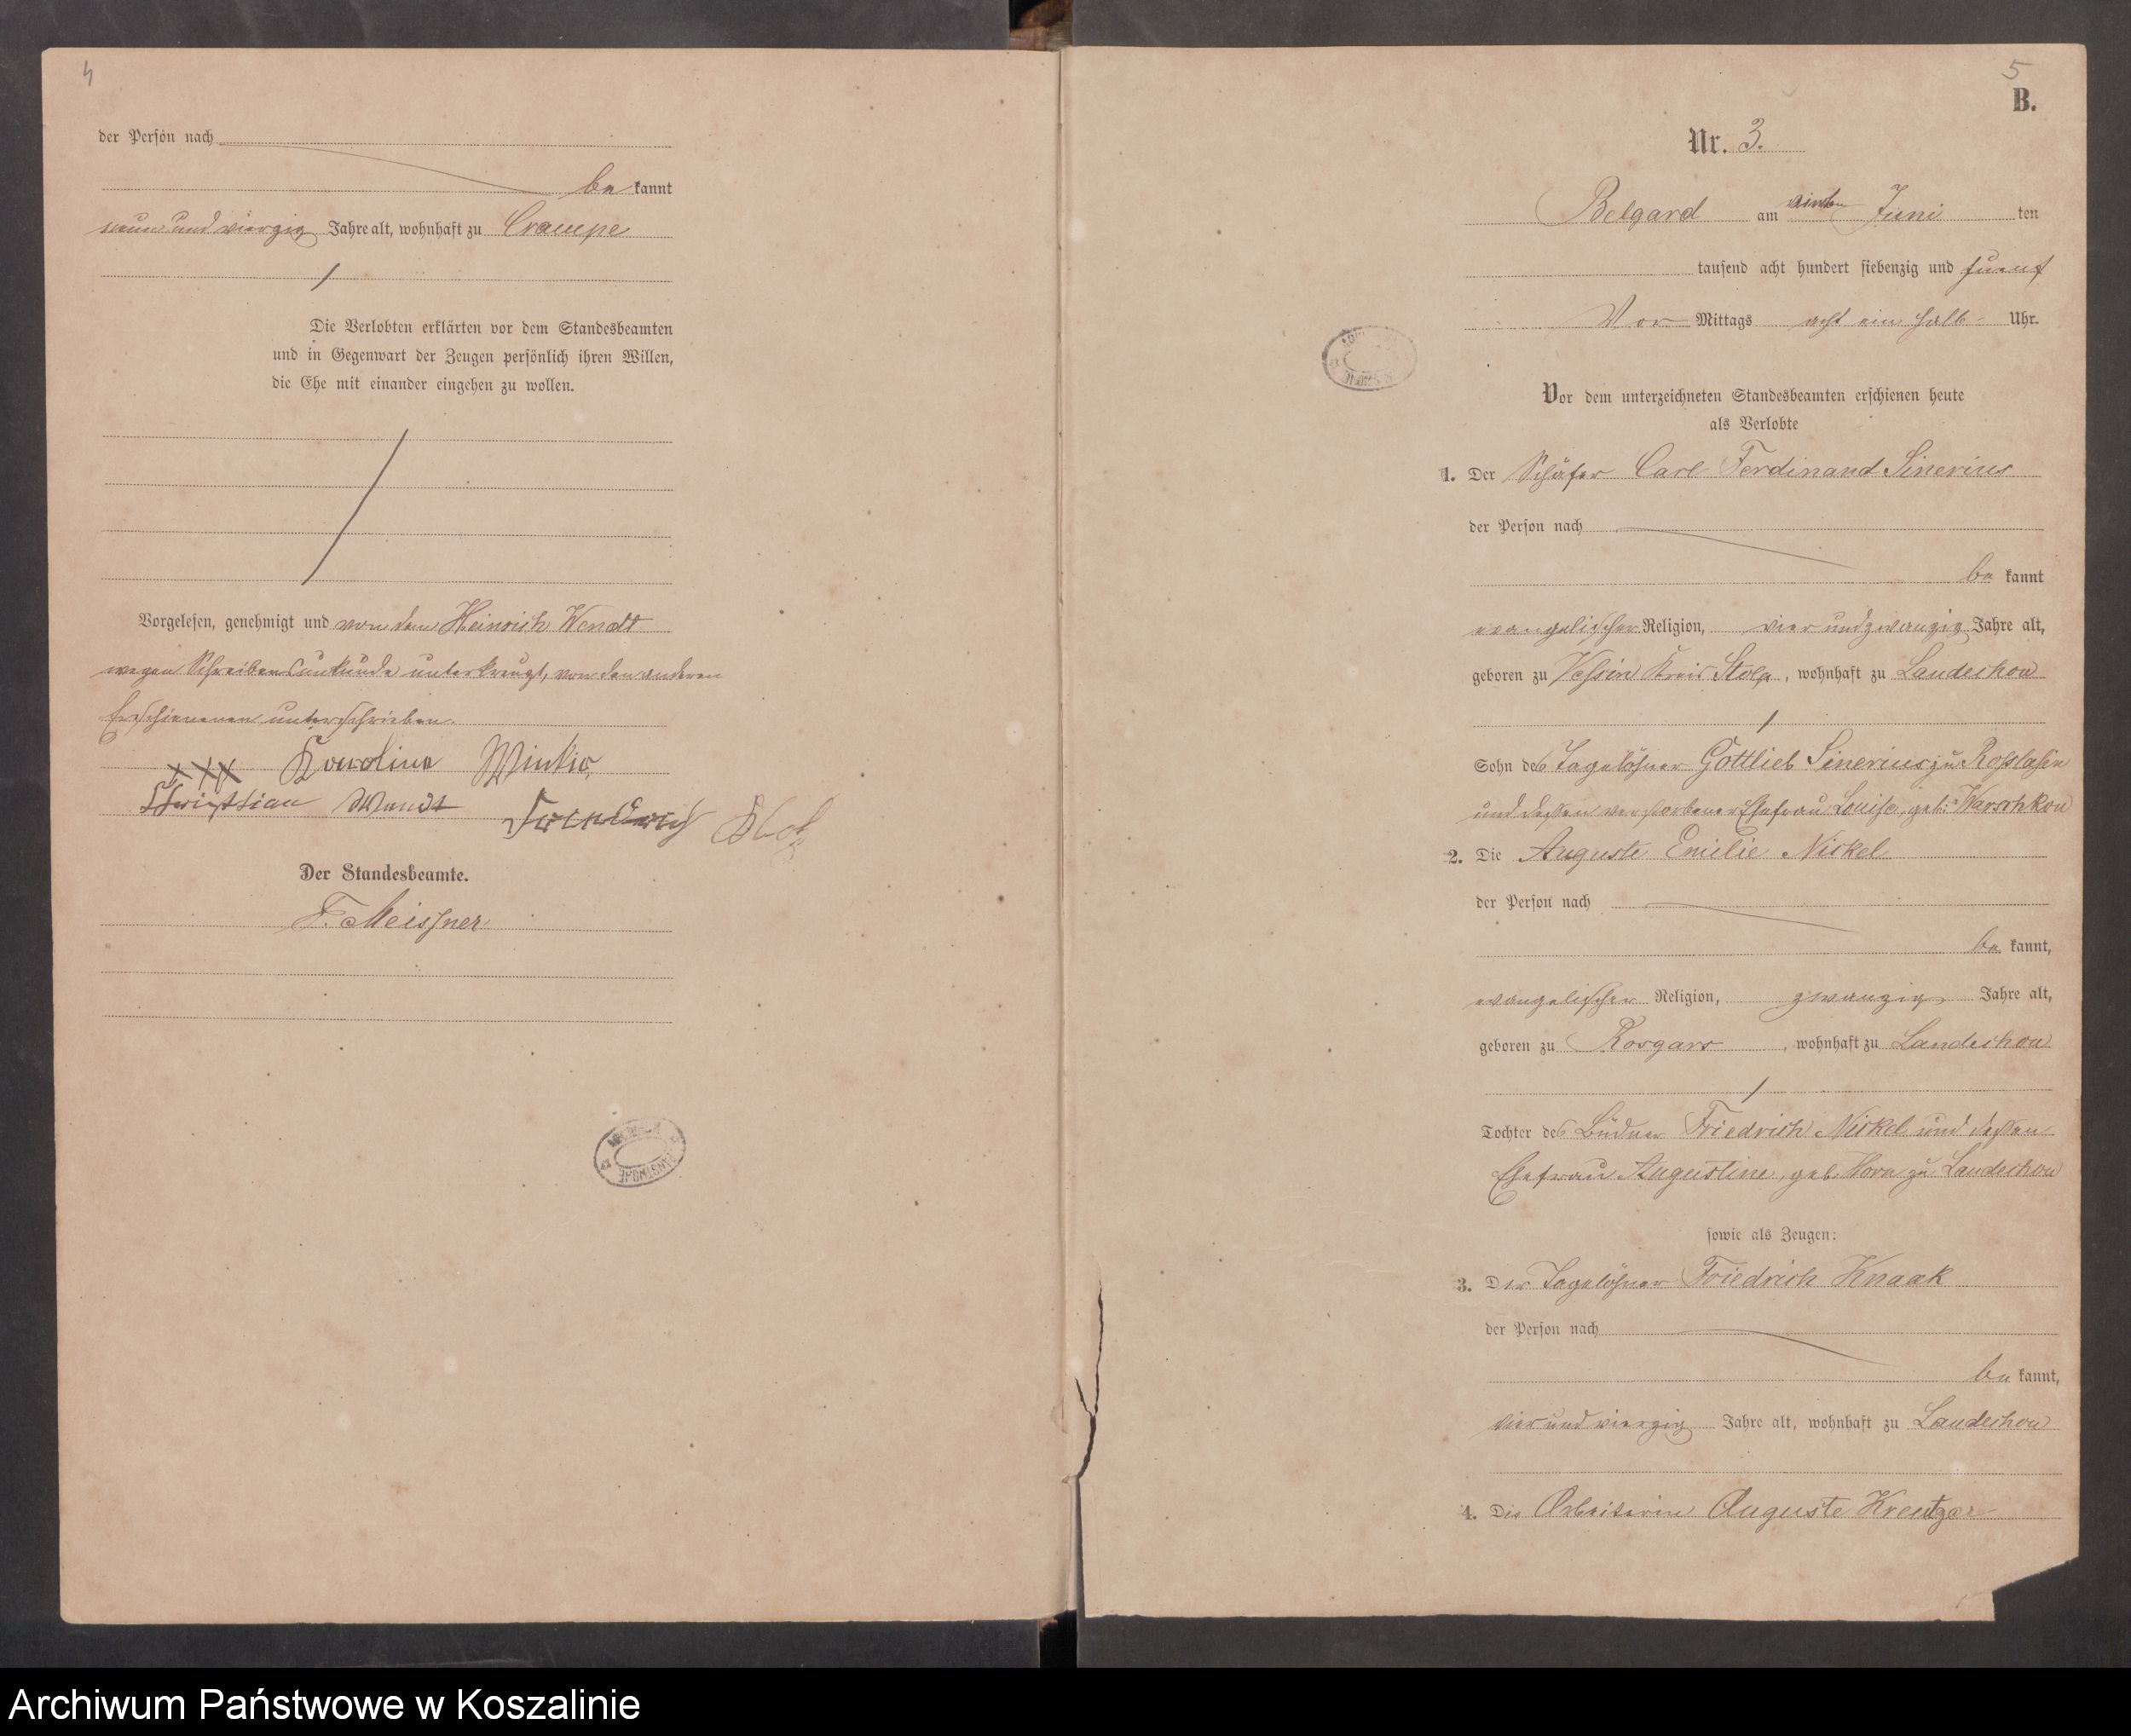 4
der Person nach
be kannt
neun und vierzig Jahre alt, wohnhaft zu Crampe
Die Verlobten erklärten vor dem Standesbeamten
und in Gegenwart der Zeugen persönlich ihren Willen,
die Ehe mit einander eingehen zu wollen.
Vorgelesen, genehmigt und von dem Heinrich Wendt
wegen Schreibensunkunde unterkreuzt, von den anderen
Erschienenen unterschrieben.
XXX Karoline
Christian Wendt
Der Standesbeamte.
F. Meissner
5
B.
Nr. 3.
Belgard am Juni ten
tausend acht hundert siebenzig und fuenf
Vor Mittags acht ein halb Uhr.
Vor dem unterzeichneten Standesbeamten erschienen heute
als Verlobte
1. Der Schäfer Carl Ferdinand Sinerius
der Person nach
be kannt
evangelischer Religion, vier und zwanzig Jahre alt,
geboren zu Vessin Kreis Stolp, wohnhaft zu Landechow
Sohn des Tagelöhner Gottlieb Sinerius zu Roslasin
und dessen verstorbener Ehefrau Louise, geb. Warschkow
2. Die Auguste Emilie Nickel
der Person nach
be kannt,
evangelischer Religion, zwanzig Jahre alt,
geboren zu Rosgars, wohnhaft zu Landechow
Tochter des Büdner Friedrich Nickel und dessen
Ehefrau Augustine, geb. Horn zu Landechow
sowie als Zeugen:
3. Der Tagelöhner Friedrich Knaak
der Person nach
be kannt,
vier und vierzig Jahre alt, wohnhaft zu Landechow
4. Die Arbeiterin Auguste Kreutzer
Archiwum Państwowe w Koszalinie